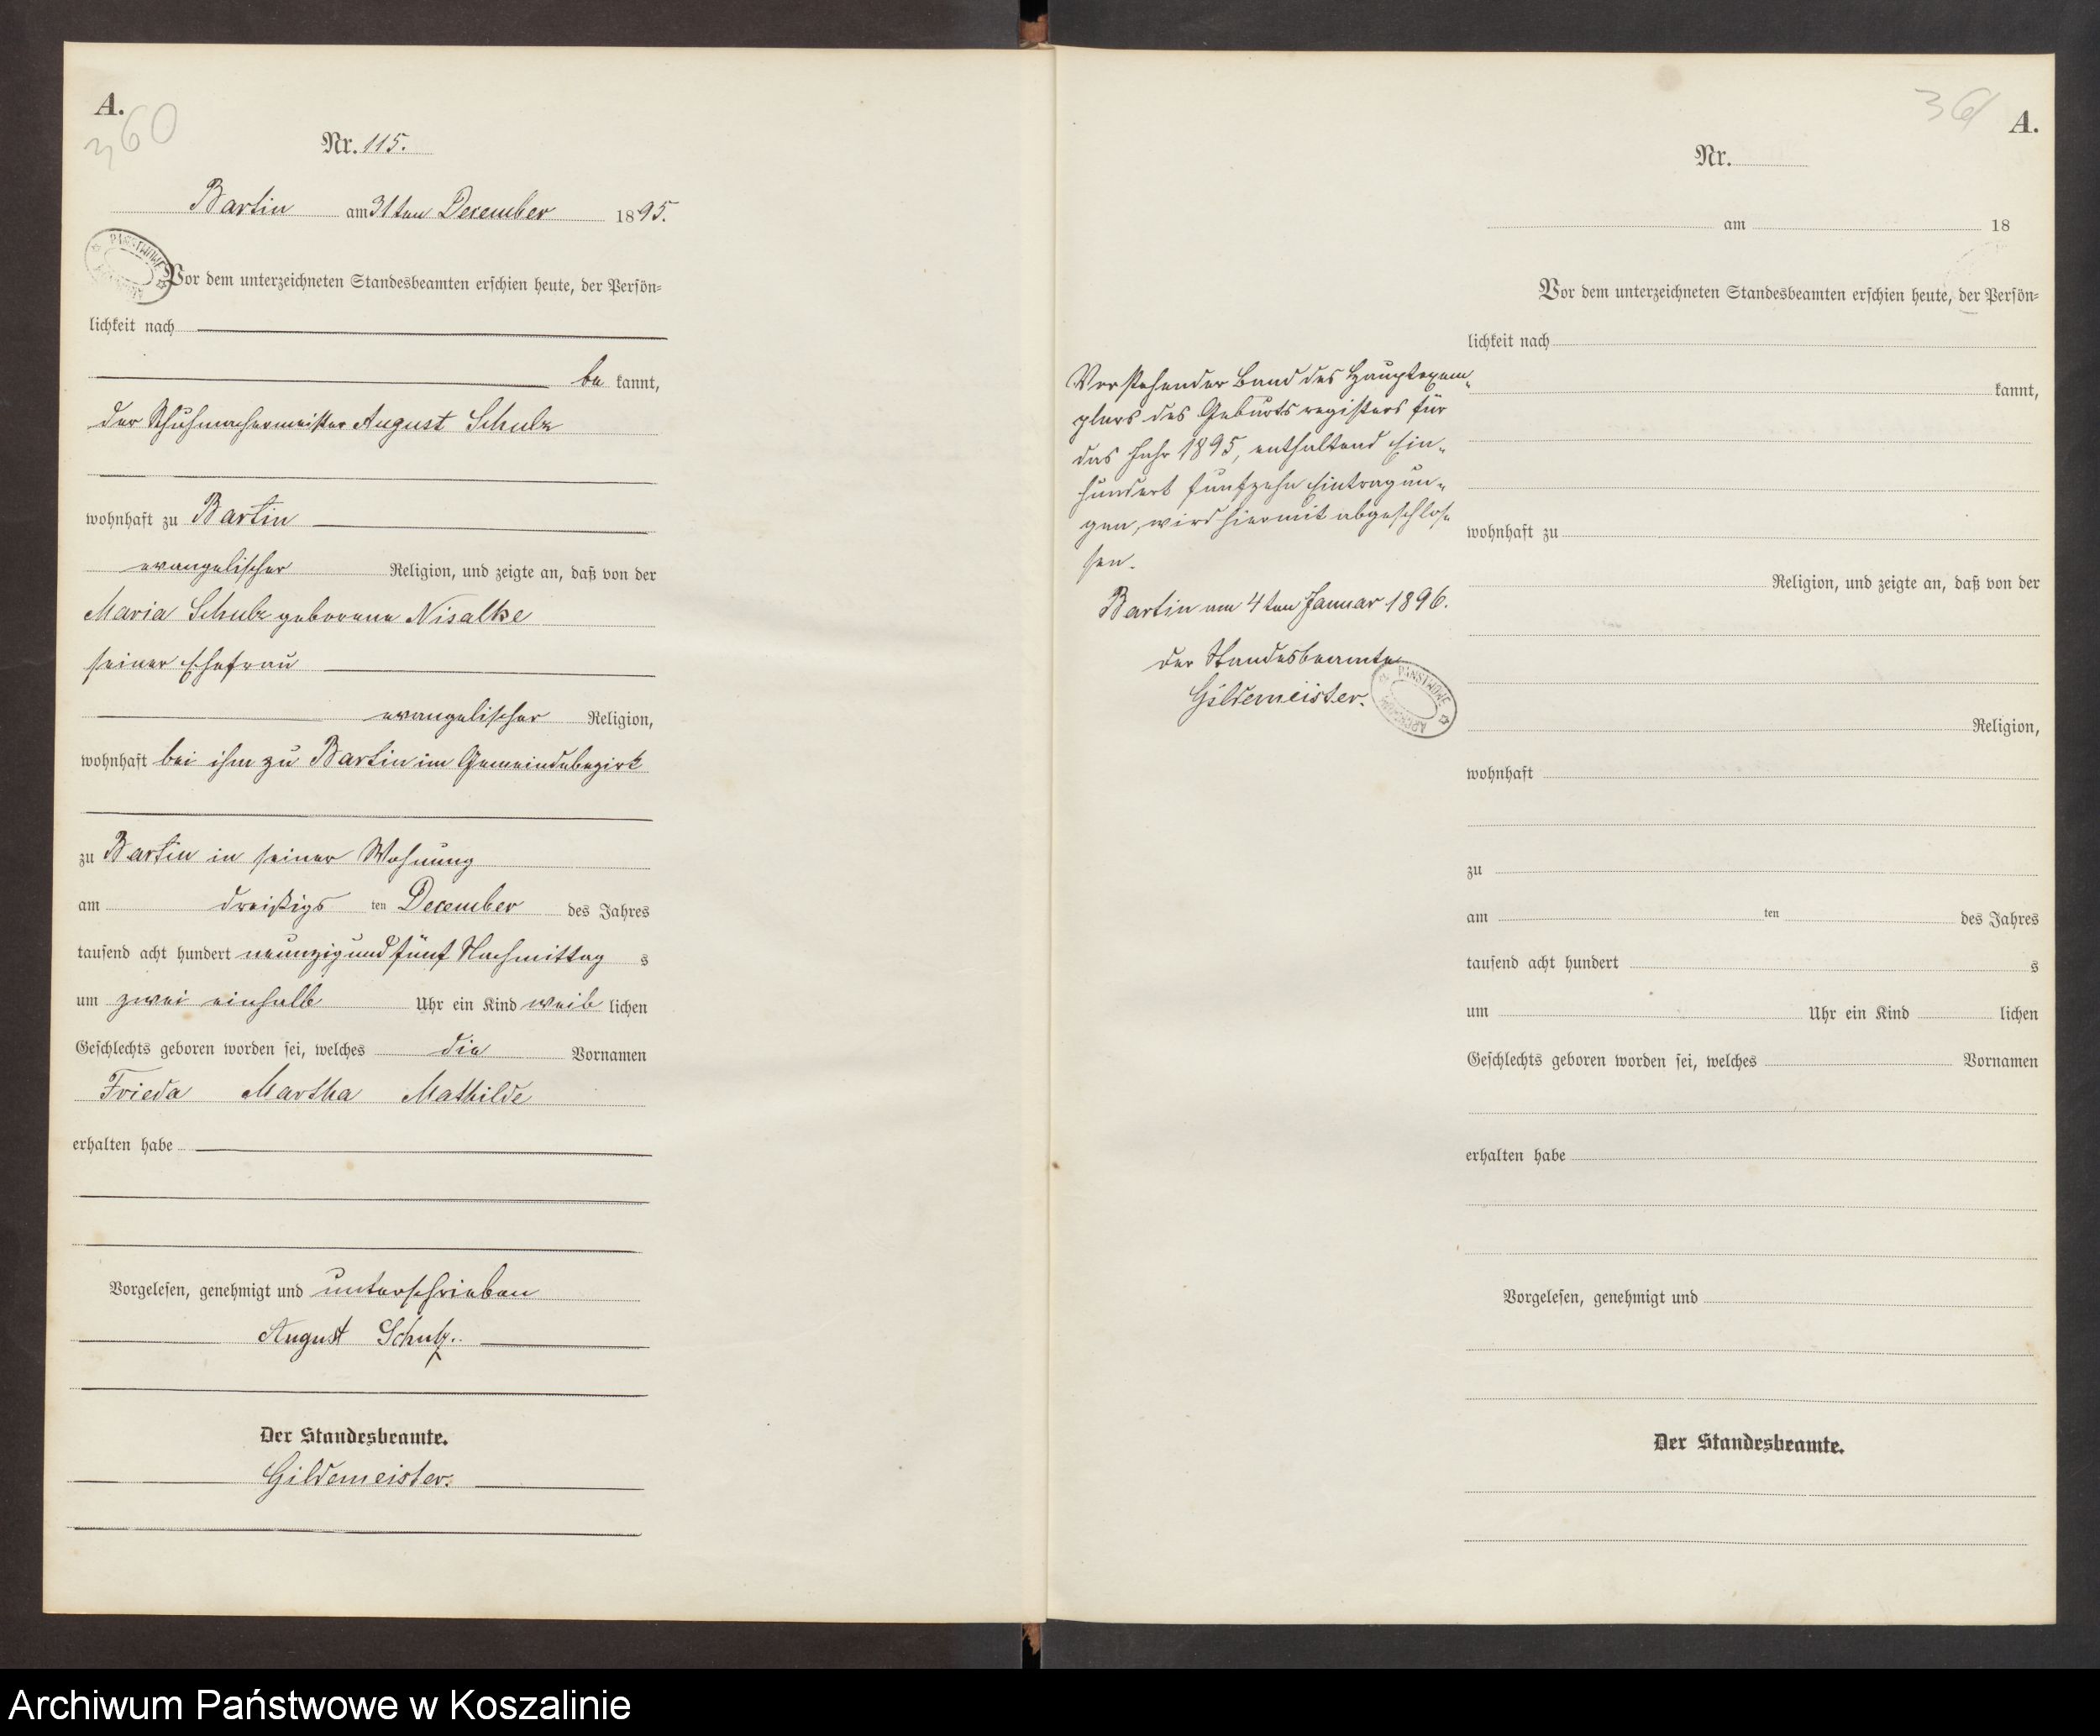 A.
360
Nr. 115.
Bartin am 31ten December 1895.
Vor dem unterzeichneten Standesbeamten erschien heute, der Persön-
lichkeit nach
be kannt,
der Schuhmachermeister August Schulz
wohnhaft zu Bartin
evangelischer Religion, und zeigte an, daß von der
Maria Schulz geborene Nisalke
seiner Ehefrau
evangelischer Religion,
wohnhaft bei ihm zu Bartin im Gemeindebezirk
zu Bartin in seiner Wohnung
am dreißigs ten December des Jahres
tausend acht hundert neunzig und fünf Nachmittag s
um zwei einhalb Uhr ein Kind weib lichen
Geschlechts geboren worden sei, welches die Vornamen
Frieda Martha Mathilde
erhalten habe
Vorgelesen, genehmigt und unterschrieben
August Schulz.
Der Standesbeamte.
Gildemeister.
361
A.
Nr.
am 18
Vor dem unterzeichneten Standesbeamten erschien heute, der Persön-
lichkeit nach
kannt,
wohnhaft zu
Religion, und zeigte an, daß von der
Religion,
wohnhaft
zu
am ten des Jahres
tausend acht hundert s
um Uhr ein Kind lichen
Geschlechts geboren worden sei, welches Vornamen
erhalten habe
Vorgelesen, genehmigt und
Der Standesbeamte.
Vorstehender Band des Hauptexem-
plars des Geburtsregisters für
das Jahr 1895, enthaltend Ein-
hundert fünfzehn Eintragun-
gen, wird hiermit abgeschlos-
sen.
Bartin am 4ten Januar 1896.
Der Standesbeamte
Gildemeister.
PAŃSTWOWE
Archiwum Państwowe w Koszalinie